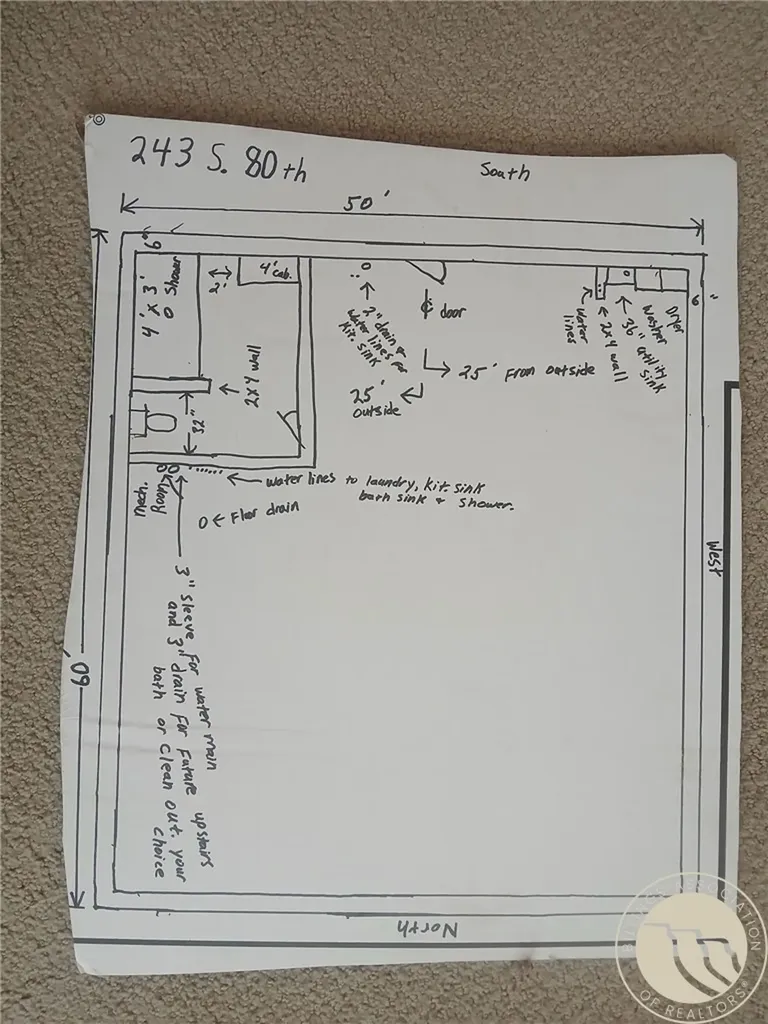 243 S. 80th
South
50'
6"
4' x 3'
Shower
2'
4' cab.
2x4 wall
32"
2" drain &
water lines for
kit. sink
¢ door
25' From outside
25'
outside
water
lines
2x4 wall
36" utility
sink
Washer
Dryer
6"
water lines to laundry, kit. sink
bath sink & shower.
Mech.
Room
Floor drain
3" sleeve for water main
and 3" drain for future upstairs
bath or clean out. your
choice
60'
West
North
BILLINGS ASSOCIATION
OF REALTORS